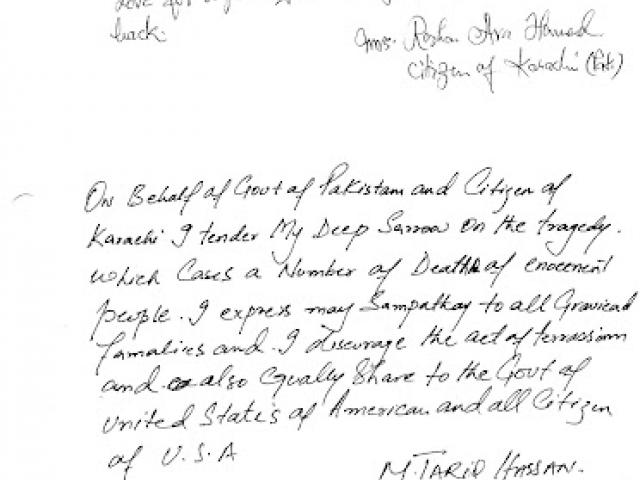 love for
back.
Mrs. Roshan Ara Hamed
Citizen of Karachi (Pak.)
On Behalf of Govt of Pakistan and Citizen of
Karachi I tender My Deep Sarrow on the tragedy.
which Cases a Number of Deaths of enocennt
people. I express may Sampathay to all Gravicad
familics and I discurage the act of terrassim
and also Equally Share to the Govt of
United States of American and all Citizen
of U.S.A
M. TARIQ HASSAN.